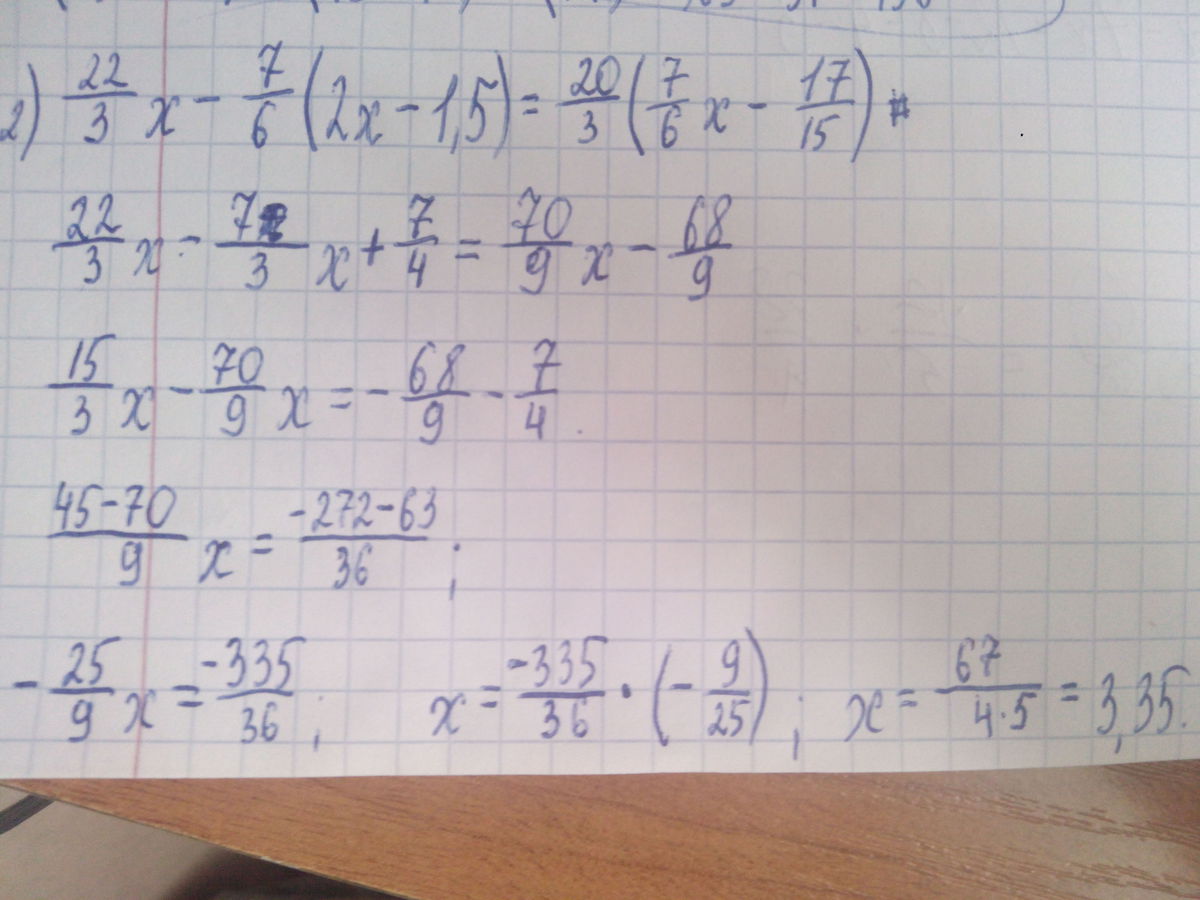 2) 22/3 x - 7/6 (2x - 1,5) = 20/3 (7/6 x - 17/15)
22/3 x - 7/3 x + 7/4 = 70/9 x - 68/9
15/3 x - 70/9 x = - 68/9 - 7/4 .
45-70/9 x = -272-63/36 ;
- 25/9 x = -335/36 ; x = -335/36 · (- 9/25) ; x = 67/4·5 = 3,35.